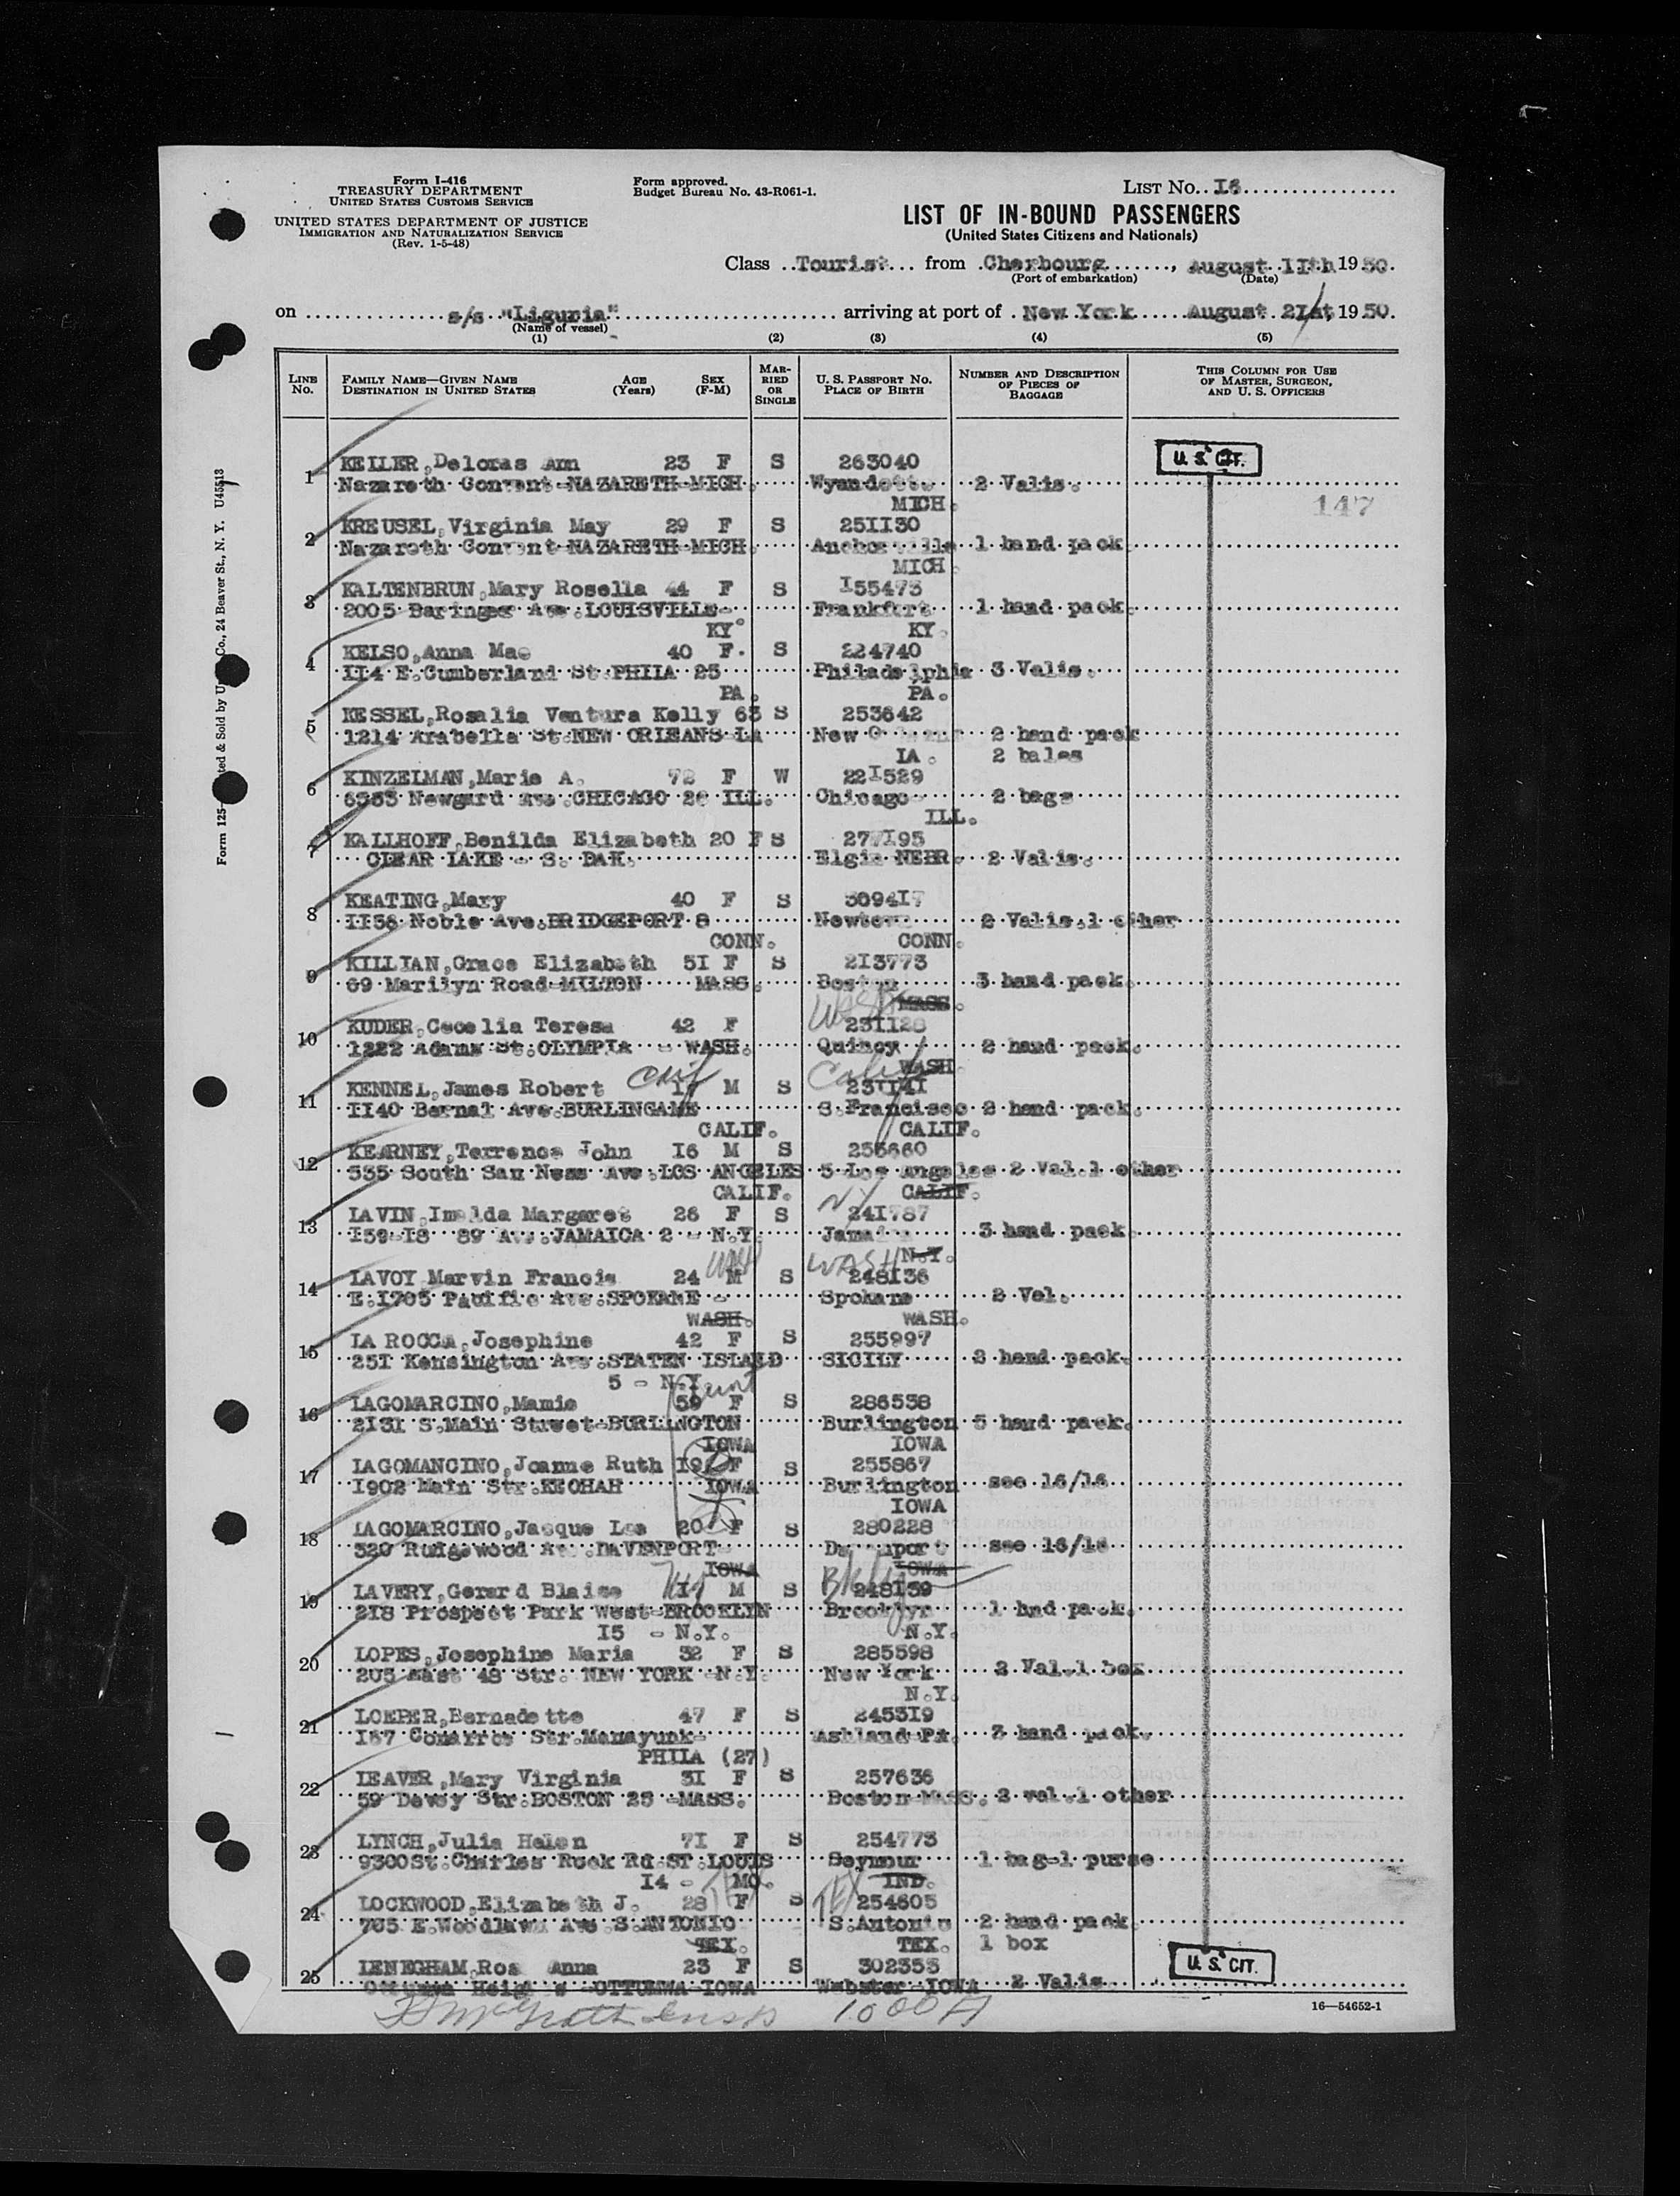 Form I-416
TREASURY DEPARTMENT
UNITED STATES CUSTOMS SERVICE
UNITED STATES DEPARTMENT OF JUSTICE
IMMIGRATION AND NATURALIZATION SERVICE
(Rev. 1-5-48)
Form approved.
Budget Bureau No. 43-R061-1.
LIST No. I6
LIST OF IN-BOUND PASSENGERS
(United States Citizens and Nationals)
Class Tourist from Cherbourg, August IIth 1950.
(Port of embarkation) (Date)
on s/s "Liguria" arriving at port of New York August 21st, 1950.
(Name of vessel)
(1) (2) (3) (4) (5)
LINE No. FAMILY NAME—GIVEN NAME DESTINATION IN UNITED STATES AGE (Years) SEX (F-M) MARRIED OR SINGLE U. S. PASSPORT No. PLACE OF BIRTH NUMBER AND DESCRIPTION OF PIECES OF BAGGAGE THIS COLUMN FOR USE OF MASTER, SURGEON, AND U. S. OFFICERS
1 KEILER, Deloras Ann 23 F S 263040 U. S. CIT.
Nazareth Convent-NAZARETH-MICH. Wyandotte 2 Valis.
MICH. 147
2 KREUSEL, Virginia May 29 F S 25II30
Nazareth Convent-NAZARETH-MICH. 1 hand pack.
MICH.
3 KALTENBRUN, Mary Rosella 44 F S I55473
2005 Baringer Ave. LOUISVILLE- Frankfort 1 hand pack.
KY. KY.
4 KELSO, Anna Mae 40 F. S 224740
II4 E. Cumberland St. PHILA 25 Philadelphia 3 Valis.
PA. PA.
5 KESSEL, Rosalia Ventura Kelly 63 S 253642
1214 Arabella St. NEW ORLEANS-LA New 2 hand pack
LA. 2 bales
6 KINZELMAN, Marie A. 72 F W 22I529
Newgard Ave. CHICAGO 26 ILL. Chicago 2 bags
ILL.
7 KALLHOFF, Benilda Elizabeth 20 F S 277I95
CLEAR LAKE - S. DAK. Elgin NEBR. 2 Valis.
8 KEATING, Mary 40 F S 3094I7
II56 Noble Ave. BRIDGEPORT 8 Newtown 2 Valis. 1 other
CONN. CONN.
9 KILLIAN, Grace Elizabeth 5I F S 2I3773
69 Marilyn Road-MILTON MASS. Boston 3 hand pack.
MASS.
10 KUDER, Cecelia Teresa 42 F 23II28
1222 Adams St. OLYMPIA - WASH. Quincy 2 hand pack.
WASH
11 KENNEL, James Robert M S 23II4I
II40 Bernal Ave. BURLINGAME S. Francisco 2 hand pack.
CALIF. Calif CALIF.
12 KEARNEY, Terrence John I6 M S 256660
535 South San Ness Ave. LOS ANGELES 5 Los Angeles 2 Val. 1 other
CALIF. CALIF.
13 LAVIN, Imelda Margaret 26 F S NY 24I787
I59-I8 89 Av. JAMAICA 2 - N.Y. 3 hand pack.
N.Y.
14 LAVOY Marvin Francis 24 WASH M S WASH 248I36
E. I705 Pacific Ave. SPOKANE - Spokane 2 Vel.
WASH. WASH.
15 LA ROCCA, Josephine 42 F S 255997
25I Kensington Ave. STATEN ISLAND SICILY 2 hand pack.
5 - N.Y. Aunt
16 LAGOMARCINO, Mamie 59 F S 286538
2I3I S. Main Street-BURLINGTON Burlington 5 hand pack.
IOWA IOWA
17 LAGOMANCINO, Joanne Ruth I9 F S 255867
I902 Main Str. KEOHAH IOWA Burlington see 16/16
IOWA
18 LAGOMARCINO, Jacque Lee 20 F S 280228
320 Ridgewood Av. DAVENPORT see 16/16
IOWA IOWA
19 LAVERY, Gerard Blaise M S Bkly 248I39
2I8 Prospect Park West-BROOKLYN Brooklyn 1 hnd pack.
I5 - N.Y. N.Y.
20 LOPES, Josephine Maria 32 F S 285598
205 East 48 Str. NEW YORK -N.Y. New York 2 Val. 1 box
N.Y.
21 LOEPER, Bernadette 47 F S 2453I9
I67 Str. Manayunk- Ashland Pa. 3 hand pack.
PHILA (27)
22 LEAVER, Mary Virginia 3I F S 257636
59 Dewey Str. BOSTON 25 -MASS. Boston MASS. 2 val. 1 other
23 LYNCH, Julia Helen 7I F S 254773
9300 St. Charles Rock Rd. ST. LOUIS Seymour 1 bag-1 purse
I4 - MO. IND.
24 LOCKWOOD, Elizabeth J. 28 F S TEX 254605
765 E. Woodlawn Ave S. ANTONIO S. Antonio 2 hand pack
TEX. TEX. 1 box
25 LENEGHAM, Ros Anna 23 F S 302353 U. S. CIT.
Ottumwa Heights -OTTUMWA-IOWA Webster-IOWA 2 Valis.
16—54652-1
24 Beaver St., N. Y. U45513